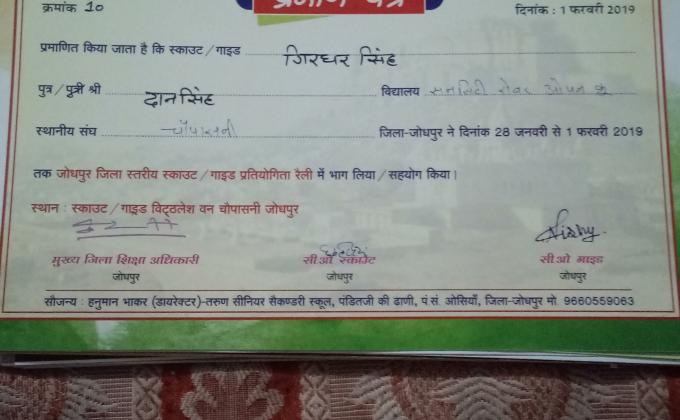 प्रमाण पत्र
क्रमांक 10 दिनांक : 1 फरवरी 2019
प्रमाणित किया जाता है कि स्काउट/गाइड गिरधर सिंह
पुत्र/पुत्री श्री दानसिंह विद्यालय सनसिटी रोवर ओपन क्रू
स्थानीय संघ चौपासनी जिला-जोधपुर ने दिनांक 28 जनवरी से 1 फरवरी 2019
तक जोधपुर जिला स्तरीय स्काउट/गाइड प्रतियोगिता रैली में भाग लिया/सहयोग किया।
स्थान : स्काउट/गाइड विट्ठलेश वन चौपासनी जोधपुर
मुख्य जिला शिक्षा अधिकारी सीओ स्काउट सीओ गाइड
जोधपुर जोधपुर जोधपुर
सौजन्य : हनुमान भाकर (डायरेक्टर)-तरुण सीनियर सैकण्डरी स्कूल, पंडितजी की ढाणी, पं.सं. ओसियाँ, जिला-जोधपुर मो. 9660559063